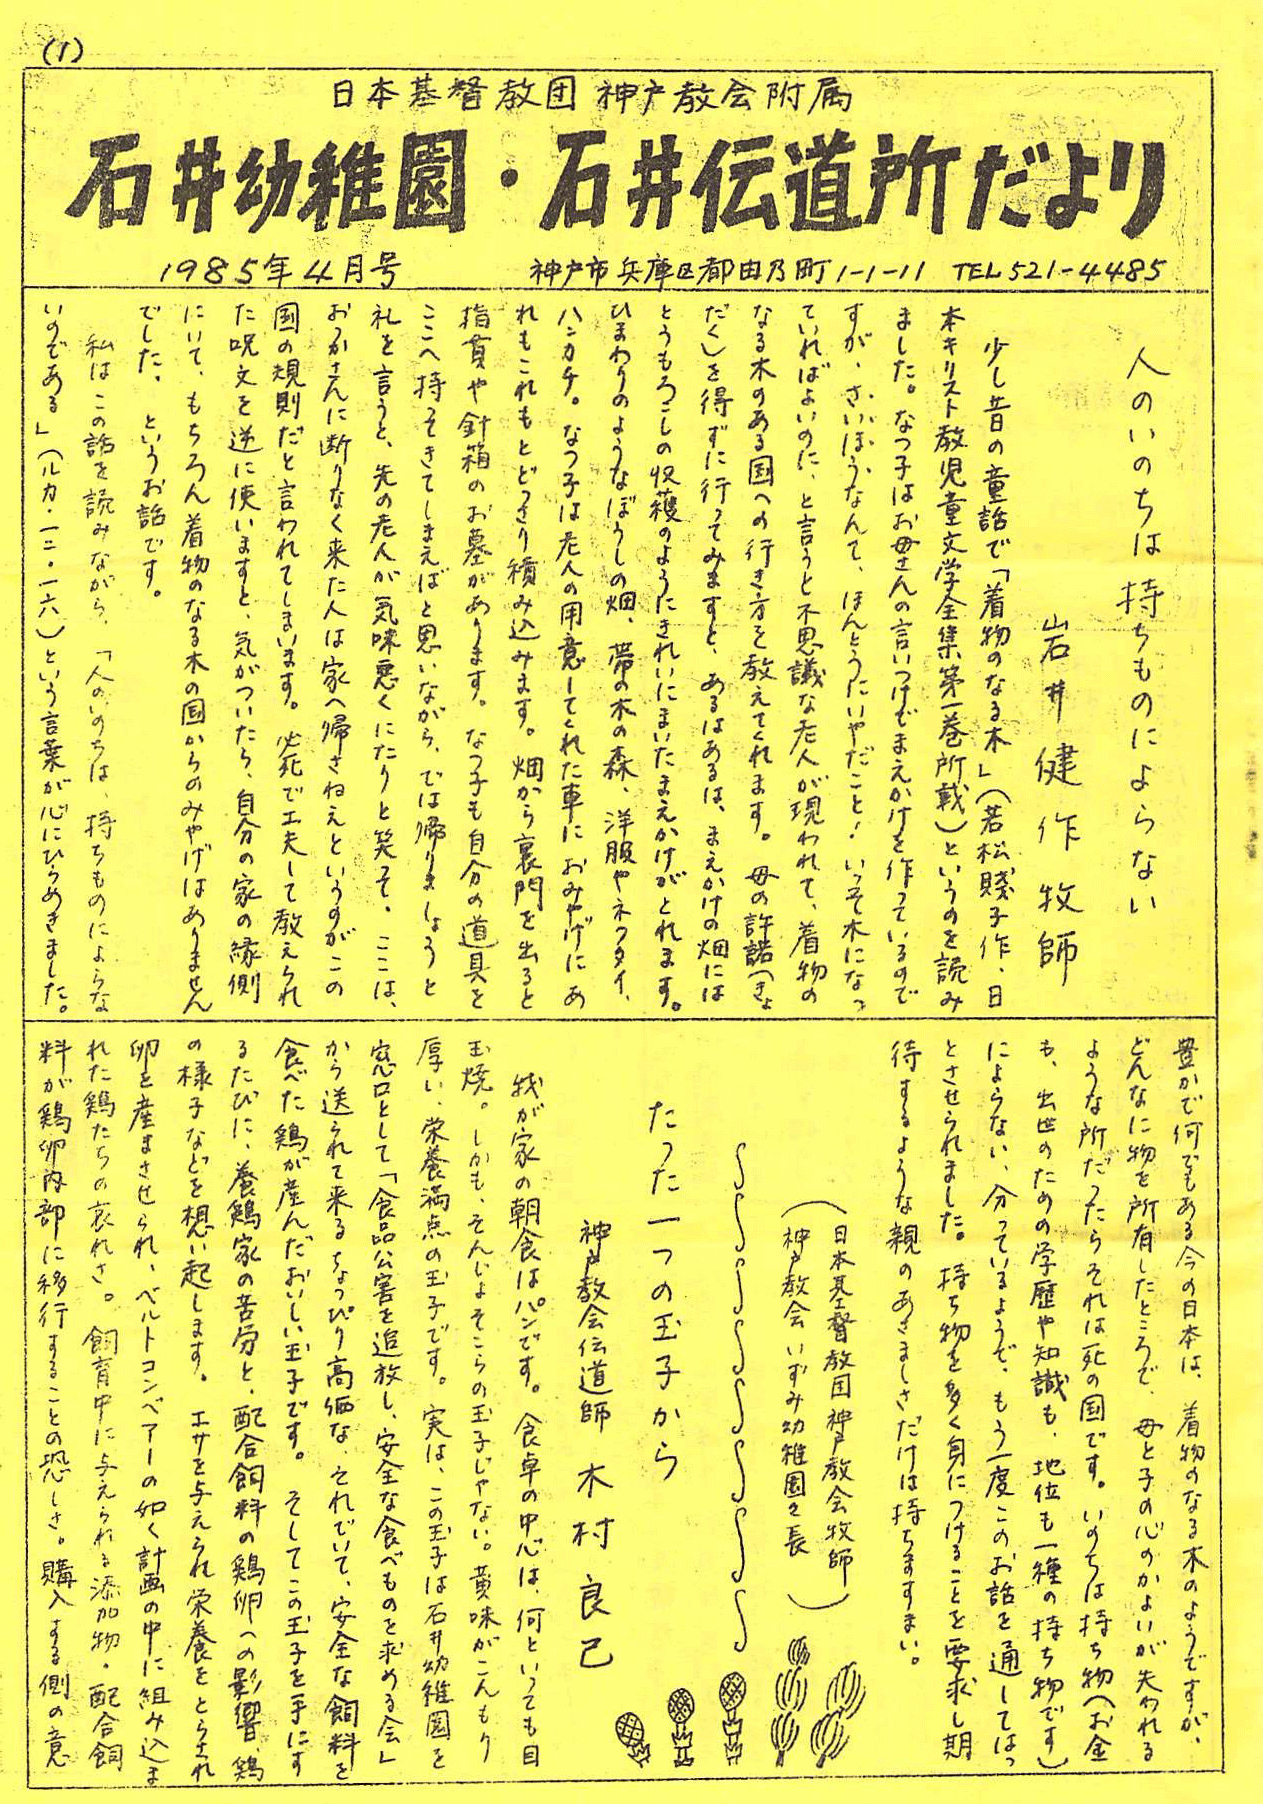 (1)
日本基督教団 神戸教会附属
石井幼稚園・石井伝道所だより
1985年4月号
神戸市兵庫区都由乃町1-1-11 TEL 521-4485
人のいのちは 持ちものによらない
岩井 健作 牧師
少し昔の童話で「着物のなる木」（若松賤子作、日
本キリスト教児童文学全集第一巻所載）というのを読み
ました。なつ子はお母さんの言いつけでまえかけを作っているので
すが、さいほうなんて、ほんとうにいやだこと！いっそ木になっ
ていればよいのに、と言うと不思議な老人が現われて、着物の
なる木のある国への行き方を教えてくれます。母の許諾（きょ
だく）を得ずに行ってみますと、あるはあるは、まえかけの畑には
とうもろこしの収穫のようにきれいにまいたまえかけがとれます。
ひまわりのようなぼうしの畑、帯の木の森、洋服やネクタイ、
ハンカチ。なつ子は老人の用意してくれた車におみやげにあ
れもこれもとどっさり積み込みます。畑から裏門を出ると
指貫や針箱のお墓があります。なつ子も自分の道具を
ここへ持ってきてしまえばと思いながら、では帰りましょうと
礼を言うと、先の老人が気味悪くにたりと笑って、ここは、
おっかさんに断りなく来た人は家へ帰さねえというのがこの
国の規則だと言われてしまいます。必死で工夫して教えられ
た呪文を逆に使いますと、気がついたら、自分の家の縁側
にいて、もちろん着物のなる木の国からのみやげはありません
でした、というお話です。
私はこの話を読みながら、「人のいのちは、持ちものによらな
いのである」（ルカ・一二・一六）という言葉が心にひらめきました。
豊かで何でもある今の日本は、着物のなる木のようですが、
どんなに物を所有したところで、母と子の心のかよいが失われる
ような所だったらそれは死の国です。いのちは持ち物へお金
も、出世のための学歴や知識も、地位も一種の持ち物です）
によらない、分っているようで、もう一度このお話を通してはっ
とさせられました。持ち物を多く身につけることを要求し期
待するような親のあさましさだけは持ちますまい。
（日本基督教団神戸教会牧師
神戸教会 いずみ幼稚園々長）
たった一つの玉子から
神戸教会伝道師 木村 良己
我が家の朝食はパンです。食卓の中心は、何といっても目
玉焼。しかも、そんじょそこらの玉子じゃない。黄味がこんもり
厚い、栄養満点の玉子です。実は、この玉子は石井幼稚園を
窓口として「食品公害を追放し、安全な食べものを求める会」
から送られて来るちょっぴり高価な、それでいて、安全な飼料を
食べた鶏が産んだおいしい玉子です。そしてこの玉子を手にす
るたびに、養鶏家の苦労と、配合飼料の鶏卵への影響、鶏
の様子などを想い起します。エサを与えられ栄養をとらされ
卵を産まさせられ、ベルトコンベアーの如く計画の中に組み込ま
れた鶏たちの哀れさ。飼育中に与えられる添加物・配合飼
料が鶏卵内部に移行することの恐しさ。購入する側の意